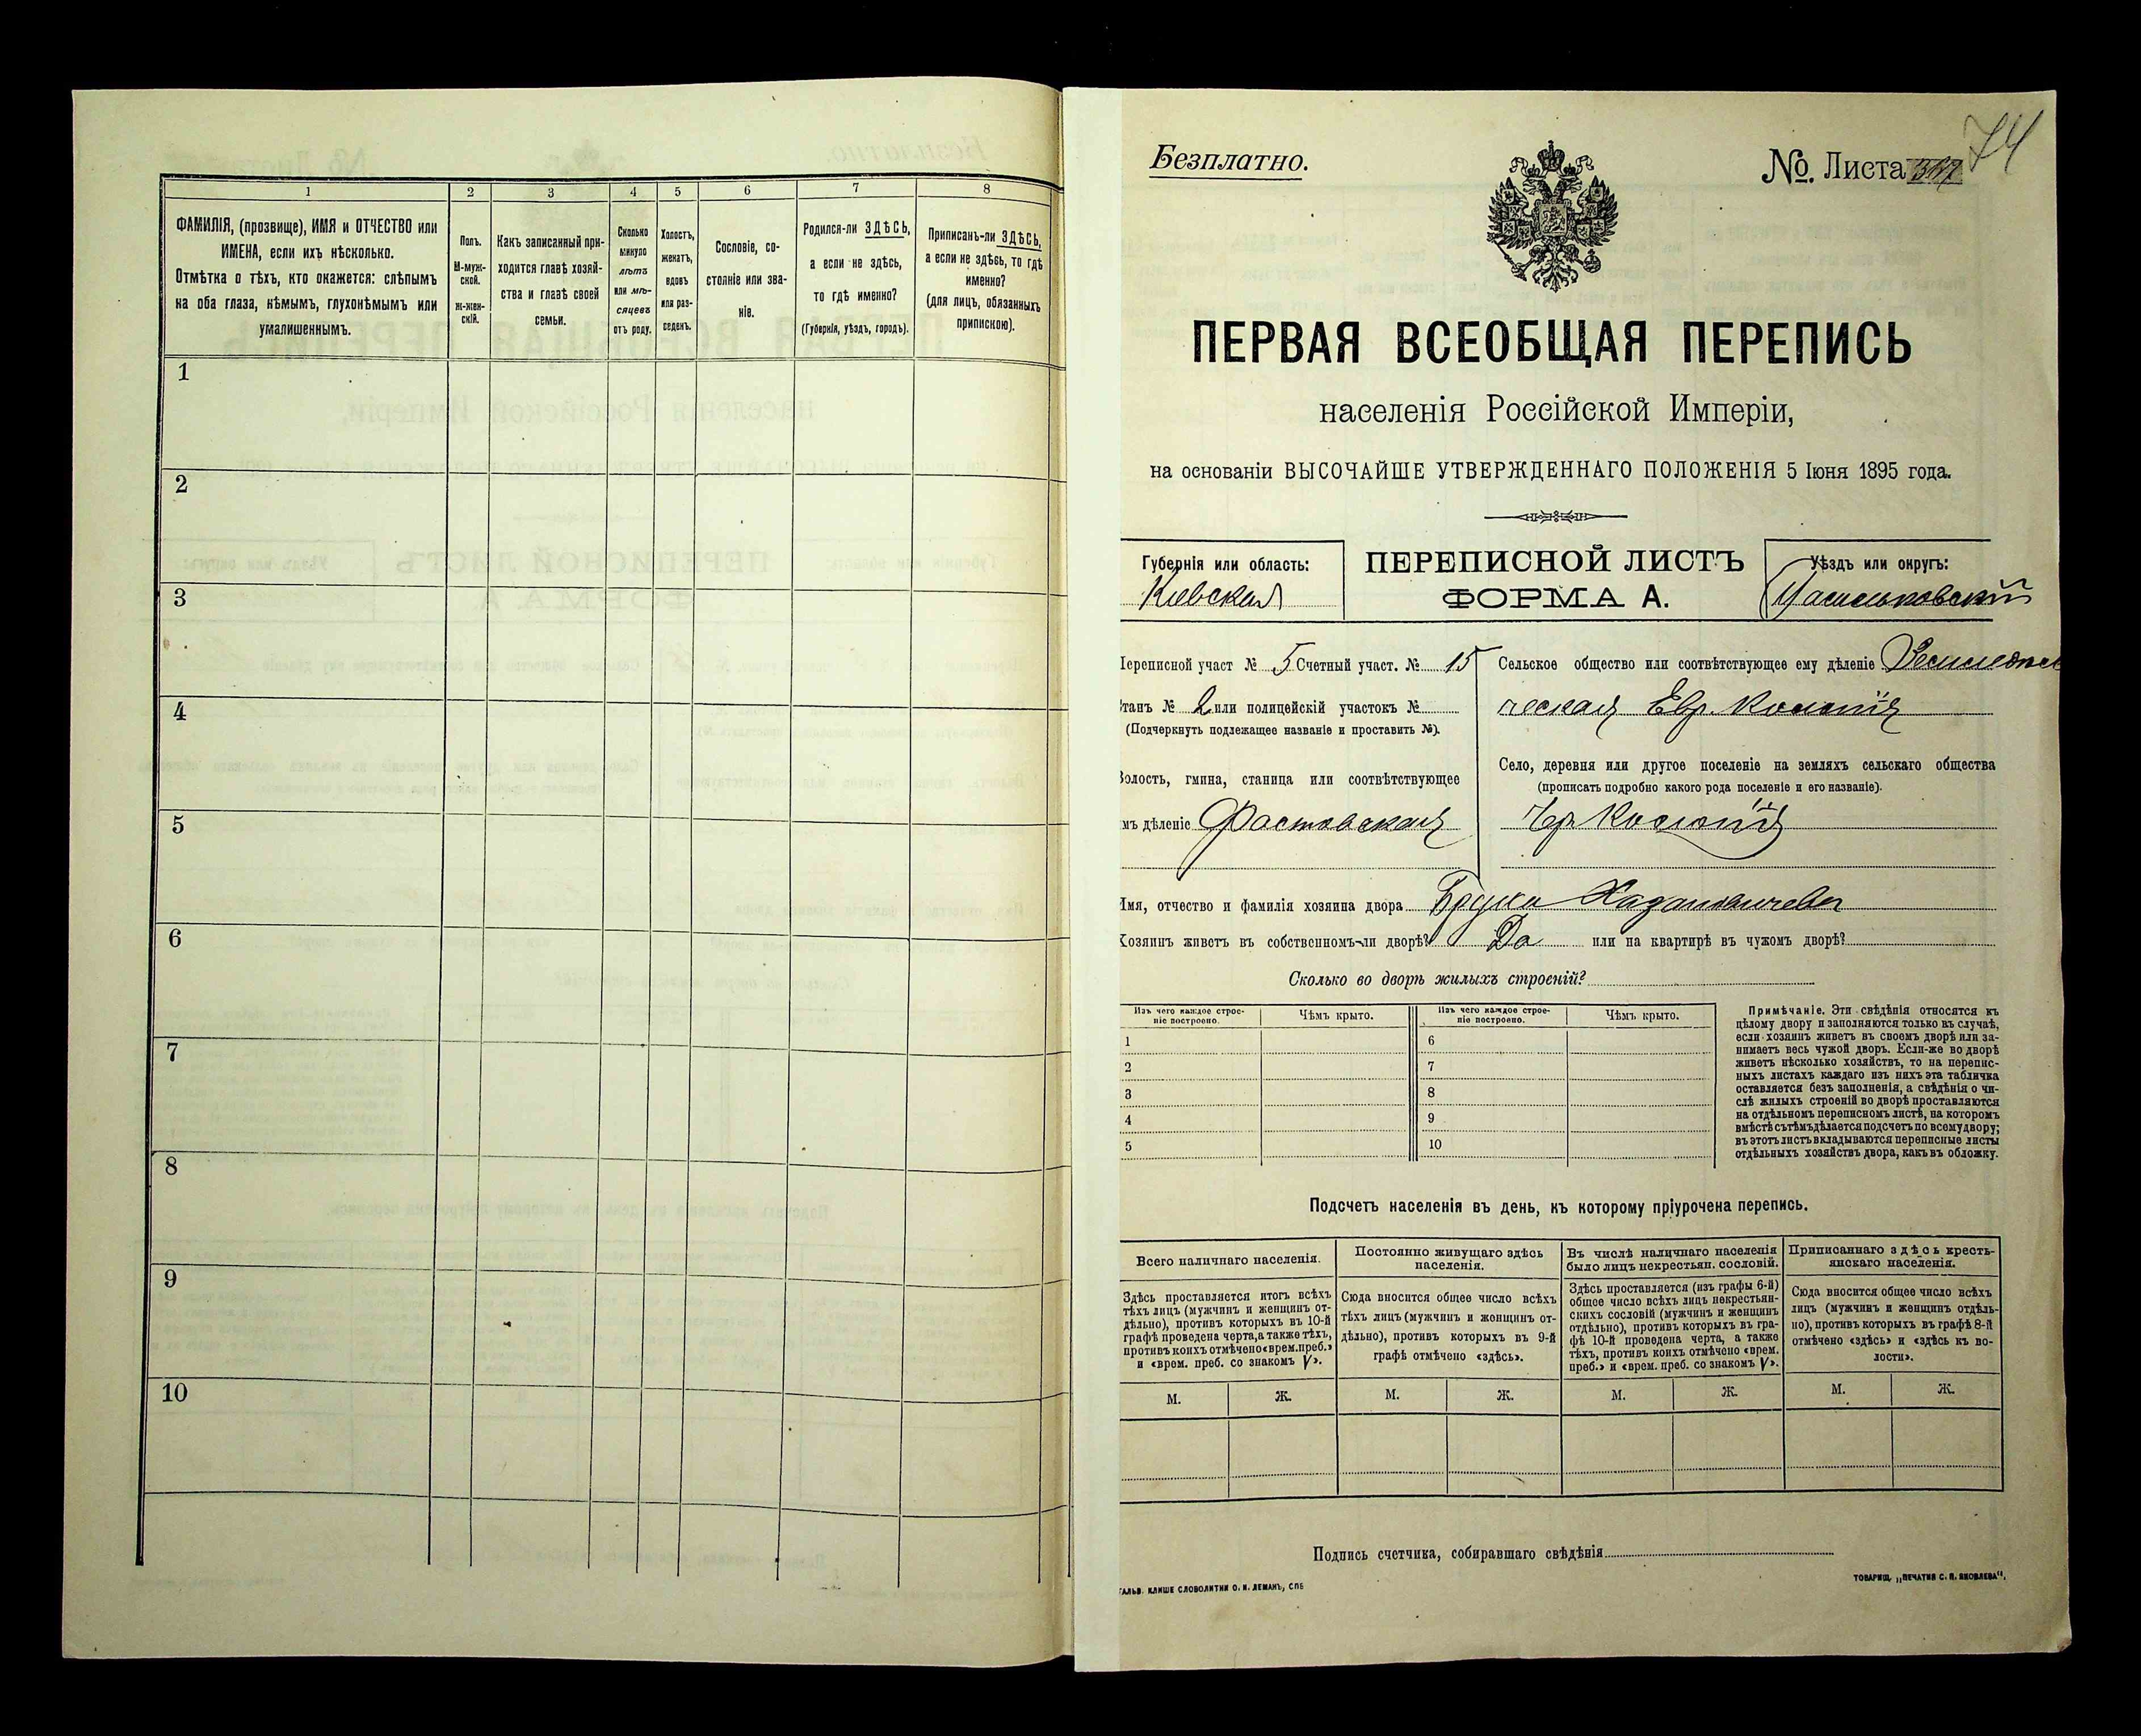 1
2
3
4
5
6
7
8
ФАМИЛІЯ, (прозвище), ИМЯ и ОТЧЕСТВО или
ИМЕНА, если ихъ нѣсколько.
Отмѣтка о тѣхъ, кто окажется: слѣпымъ
на оба глаза, нѣмымъ, глухонѣмымъ или
умалишеннымъ.
Полъ.
М-муж-
ской.
Ж-жен-
скій.
Какъ записанный при-
ходится главѣ хозяй-
ства и главѣ своей
семьи.
Сколько
минуло
лѣтъ
или мѣ-
сяцевъ
отъ роду.
Холостъ,
женатъ,
вдовъ
или раз-
веденъ.
Сословіе, со-
стояніе или зва-
ніе.
Родился-ли ЗДѢСЬ,
а если не здѣсь,
то гдѣ именно?
(Губернія, уѣздъ, городъ).
Приписанъ-ли ЗДѢСЬ,
а если не здѣсь, то гдѣ
именно?
(для лицъ, обязанныхъ
припискою).
1
2
3
4
5
6
7
8
9
10
74
Безплатно.
№. Листа
ПЕРВАЯ ВСЕОБЩАЯ ПЕРЕПИСЬ
населенія Россійской Имперіи,
на основаніи ВЫСОЧАЙШЕ УТВЕРЖДЕННАГО ПОЛОЖЕНІЯ 5 Іюня 1895 года.
Губернія или область:
Кіевская
ПЕРЕПИСНОЙ ЛИСТЪ
ФОРМА А.
Уѣздъ или округъ:
Васильковскій
Переписной участ № 5 Счетный участ. № 15
Станъ № 2 или полицейскій участокъ №
(Подчеркнуть подлежащее названіе и проставить №).
Волость, гмина, станица или соотвѣтствующее
имъ дѣленіе Фастовская
Сельское общество или соотвѣтствующее ему дѣленіе Земледѣль
ческая Евр. Колонія
Село, деревня или другое поселеніе на земляхъ сельскаго общества
(прописать подробно какого рода поселеніе и его названіе).
Колонія
Имя, отчество и фамилія хозяина двора
Хозяинъ живетъ въ собственномъ-ли дворѣ? Да или на квартирѣ въ чужомъ дворѣ?
Сколько во дворѣ жилыхъ строеній?
Изъ чего каждое строе-
ніе построено.
Чѣмъ крыто.
Изъ чего каждое строе-
ніе построено.
Чѣмъ крыто.
1
2
3
4
5
6
7
8
9
10
Примѣчаніе. Эти свѣдѣнія относятся къ
цѣлому двору и заполняются только въ случаѣ,
если хозяинъ живетъ въ своемъ дворѣ или за-
нимаетъ весь чужой дворъ. Если-же во дворѣ
живетъ нѣсколько хозяйствъ, то на перепис-
ныхъ листахъ каждаго изъ нихъ эта табличка
оставляется безъ заполненія, а свѣдѣнія о чи-
слѣ жилыхъ строеній во дворѣ проставляются
на отдѣльномъ переписномъ листѣ, на которомъ
вмѣстѣ съ тѣмъ дѣлается подсчетъ по всему двору;
въ этотъ листъ вкладываются переписные листы
отдѣльныхъ хозяйствъ двора, какъ въ обложку.
Подсчетъ населенія въ день, къ которому пріурочена перепись.
Всего наличнаго населенія.
Здѣсь проставляется итогъ всѣхъ
тѣхъ лицъ (мужчинъ и женщинъ от-
дѣльно), противъ которыхъ въ 10-й
графѣ проведена черта, а также тѣхъ,
противъ коихъ отмѣчено «врем. преб.»
и «врем. преб. со знакомъ V».
Постоянно живущаго здѣсь
населенія.
Сюда вносится общее число всѣхъ
тѣхъ лицъ (мужчинъ и женщинъ от-
дѣльно), противъ которыхъ въ 9-й
графѣ отмѣчено «здѣсь».
Въ числѣ наличнаго населенія
было лицъ некрестьян. сословій.
Здѣсь проставляется (изъ графы 6-й)
общее число всѣхъ лицъ некрестьян-
скихъ сословій (мужчинъ и женщинъ
отдѣльно), противъ которыхъ въ гра-
фѣ 10-й проведена черта, а также
тѣхъ, противъ коихъ отмѣчено «врем.
преб.» и «врем. преб. со знакомъ V».
Приписаннаго здѣсь кресть-
янскаго населенія.
Сюда вносится общее число всѣхъ
лицъ (мужчинъ и женщинъ отдѣль-
но), противъ которыхъ въ графѣ 8-й
отмѣчено «здѣсь» и «здѣсь въ во-
лости».
М. Ж. М. Ж. М. Ж. М. Ж.
Подпись счетчика, собиравшаго свѣдѣнія
ГАЛЬВ. КЛИШЕ СЛОВОЛИТНИ О. И. ЛЕМАНЪ, СПБ
ТОВАРИЩ. „ПЕЧАТНЯ С. П. ЯКОВЛЕВА“.